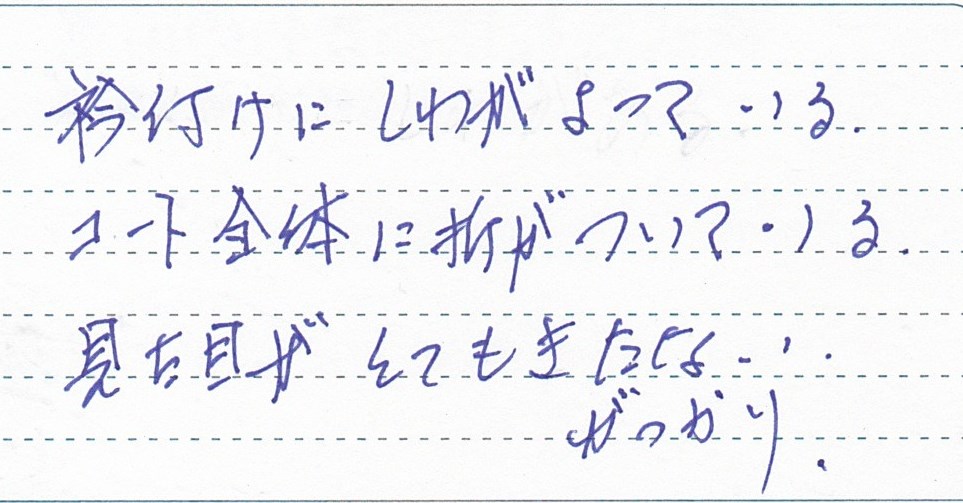 衿付けにしわがよっている.
コート全体に折がついている.
見た目がとてもきたない.
がっかり.